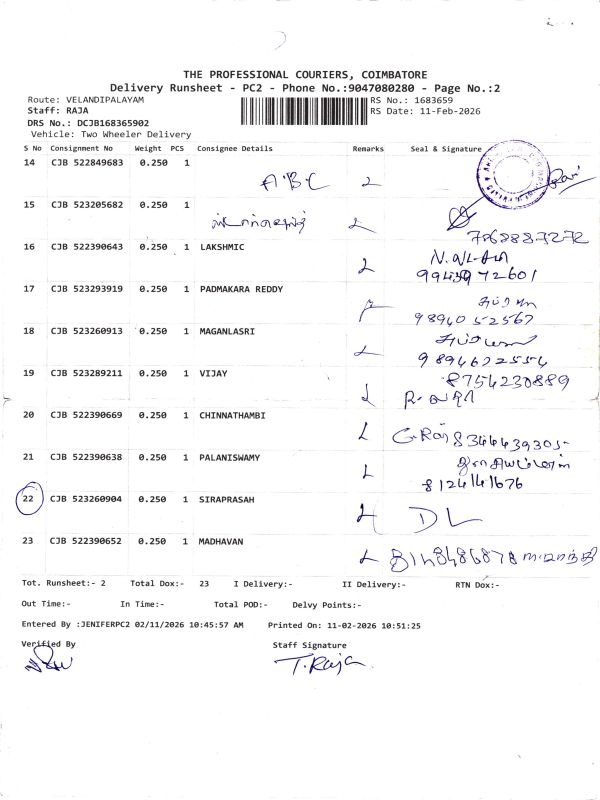 THE PROFESSIONAL COURIERS, COIMBATORE
Delivery Runsheet - PC2 - Phone No.:9047080280 - Page No.:2
Route: VELANDIPALAYAM
RS No.: 1683659
Staff: RAJA
RS Date: 11-Feb-2026
DRS No.: DCJB168365902
Vehicle: Two Wheeler Delivery
S No Consignment No Weight PCS Consignee Details Remarks Seal & Signature
14 CJB 522849683 0.250 1
ABC
15 CJB 523205682 0.250 1
16 CJB 522390643 0.250 1 LAKSHMIC
17 CJB 523293919 0.250 1 PADMAKARA REDDY
98940 52567
18 CJB 523260913 0.250 1 MAGANLASRI
9894622554
19 CJB 523289211 0.250 1 VIJAY
8754230889
20 CJB 522390669 0.250 1 CHINNATHAMBI
8344439305
21 CJB 522390638 0.250 1 PALANISWAMY
8124141676
22 CJB 523260904 0.250 1 SIRAPRASAH
DL
23 CJB 522390652 0.250 1 MADHAVAN
Tot. Runsheet:- 2 Total Dox:- 23 I Delivery:- II Delivery:- RTN Dox:-
Out Time:- In Time:- Total POD:- Delvy Points:-
Entered By :JENIFERPC2 02/11/2026 10:45:57 AM Printed On: 11-02-2026 10:51:25
Verified By Staff Signature
T. Raja